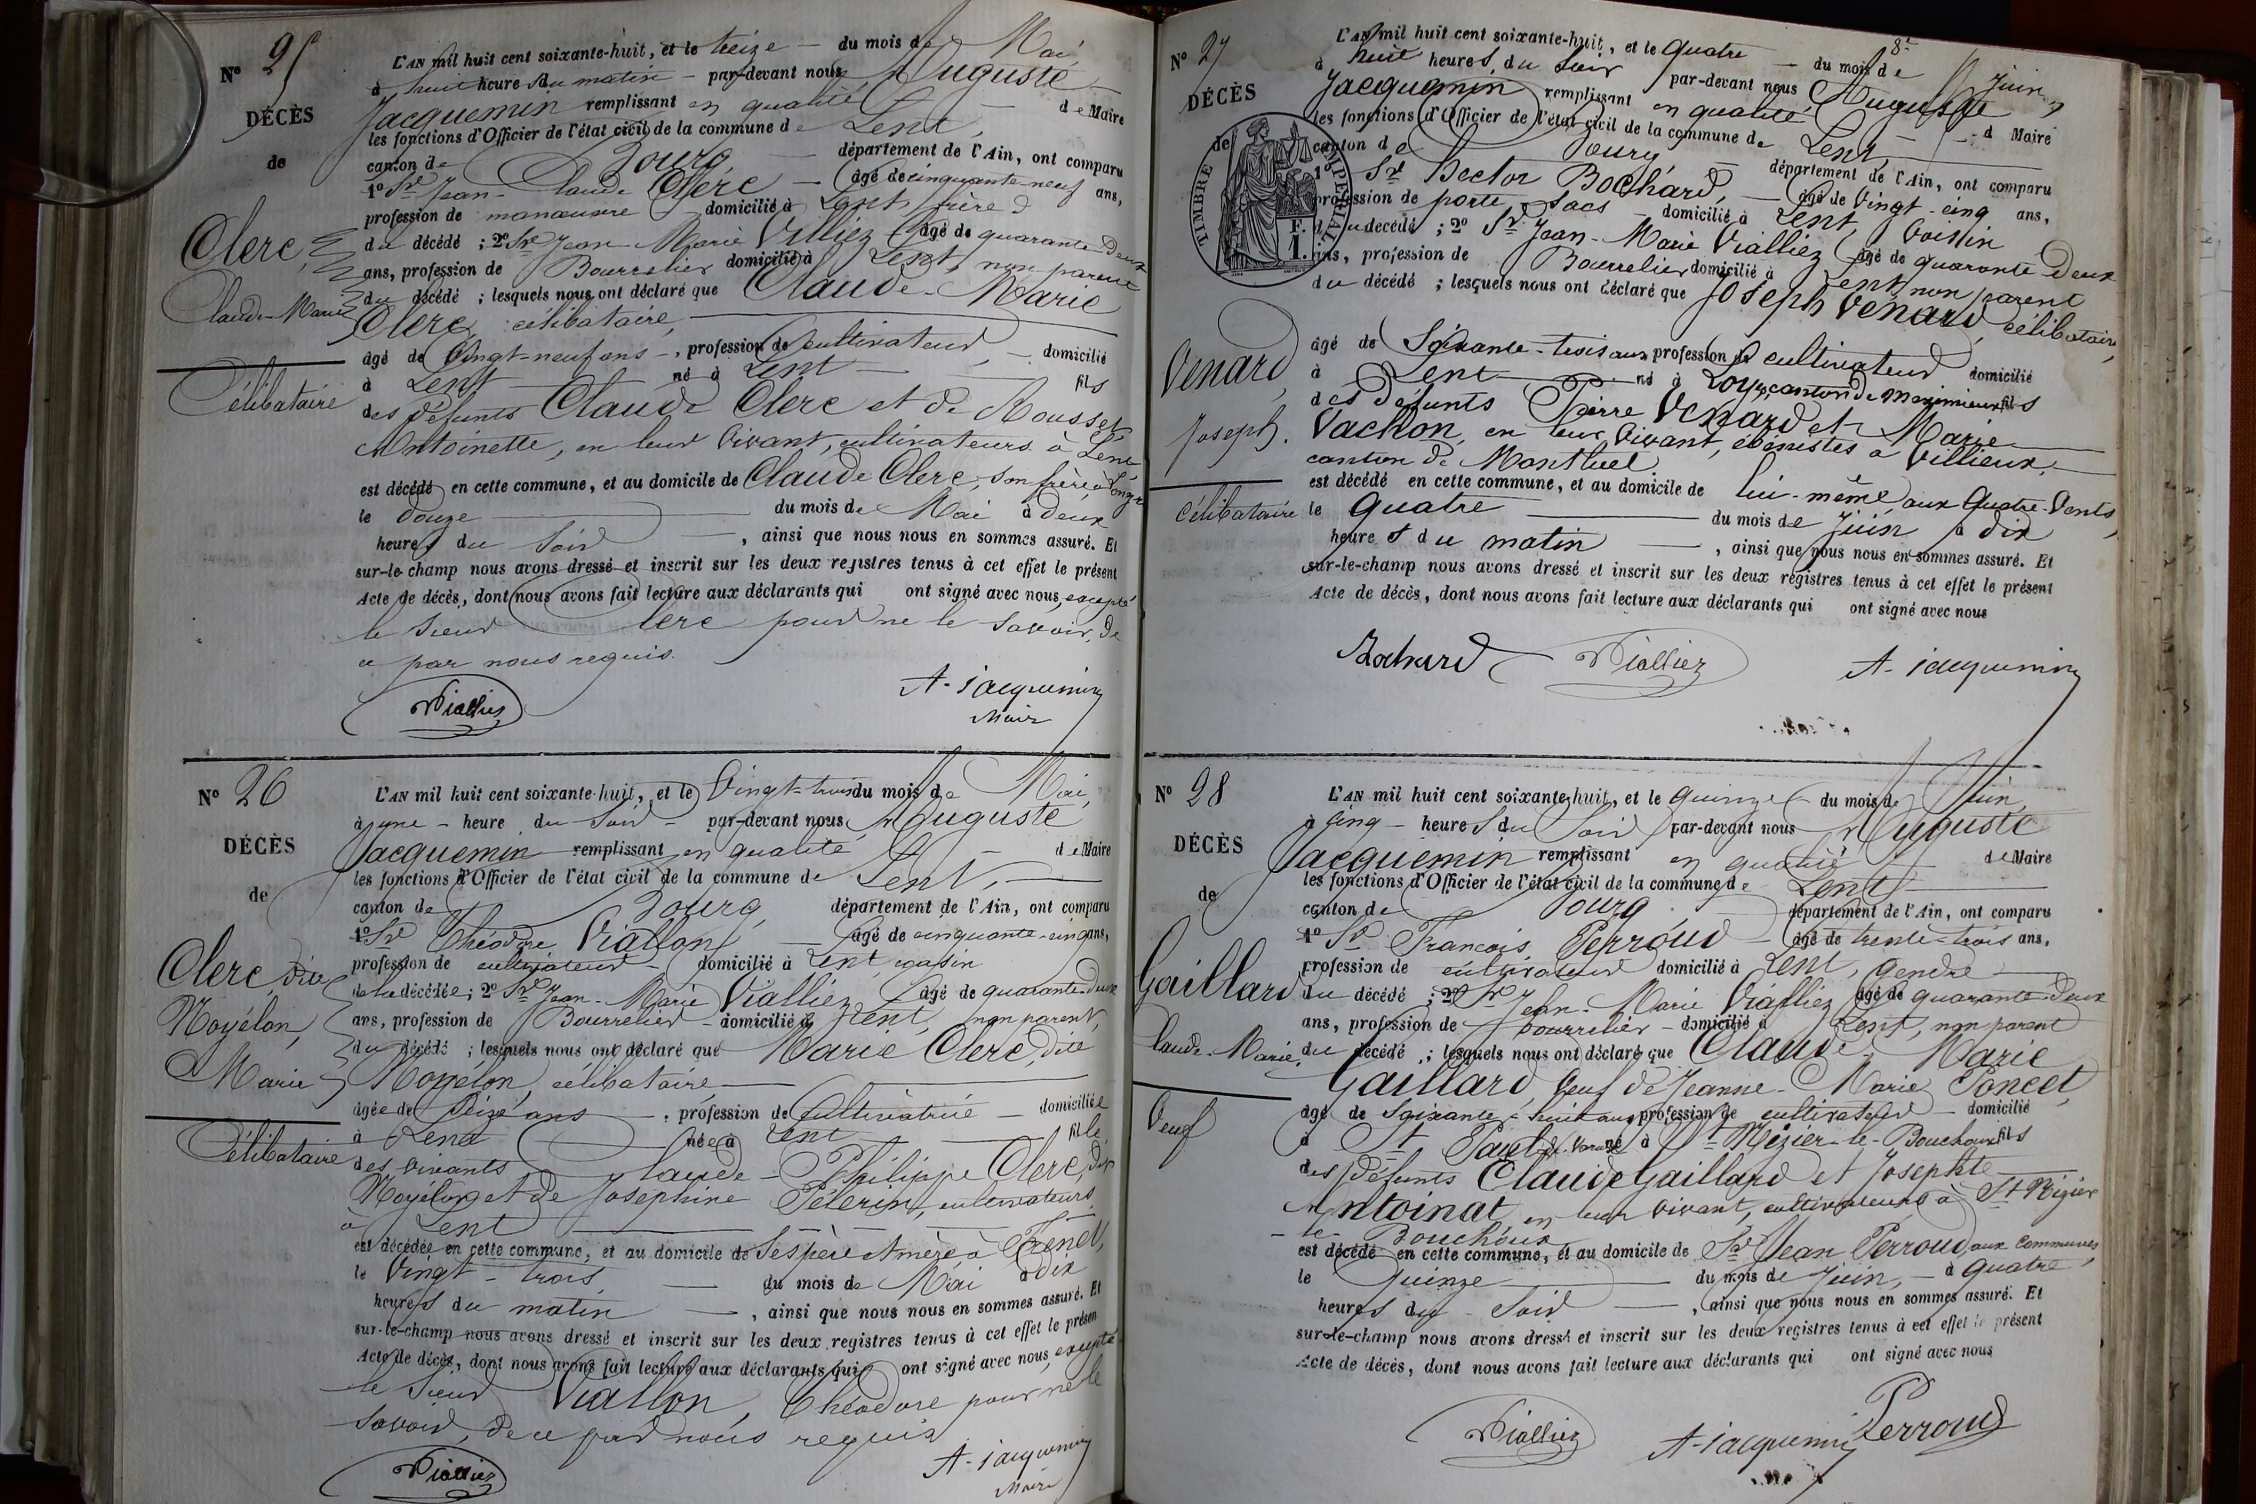 Nº 25
DÉCÈS
de
Clerc,
Claude-Marie
Célibataire
L'AN mil huit cent soixante-huit, et le treize — du mois de Mai,
à huit heure s du matin — par-devant nous Auguste
Jacquemin remplissant en qualité de Maire
les fonctions d'Officier de l'état civil de la commune de Lent,
canton de Bourg, département de l'Ain, ont comparu
1º Sr Jean-Claude Clerc — âgé de cinquante-neuf ans,
profession de manœuvre domicilié à Lent, frère
du décédé ; 2º Sr Jean-Marie Villiez âgé de quarante-deux
ans, profession de Bourrelier domicilié à Lent, non parent
du décédé ; lesquels nous ont déclaré que Claude-Marie
Clerc, célibataire,
âgé de vingt-neuf ans —, profession de cultivateur — domicilié
à Lent né à Lent — fils
des défunts Claude Clerc et de Rousset
Antoinette, en leur vivant, cultivateurs à Lent
est décédé en cette commune, et au domicile de Claude Clerc, son frère à
le douze du mois de Mai à deux
heures du soir —, ainsi que nous nous en sommes assuré. Et
sur-le-champ nous avons dressé et inscrit sur les deux registres tenus à cet effet le présent
Acte de décès, dont nous avons fait lecture aux déclarants qui ont signé avec nous, excepté
le sieur Clerc pour ne le savoir, de
ce par nous requis.
Vialliez
A. Jacquemin
Maire
Nº 26
DÉCÈS
de
Clerc, dite
Moyélon,
Marie
Célibataire
L'AN mil huit cent soixante-huit, et le vingt-trois du mois de Mai,
à une — heure du soir — par-devant nous Auguste
Jacquemin remplissant en qualité de Maire
les fonctions d'Officier de l'état civil de la commune de Lent,
canton de Bourg, département de l'Ain, ont comparu
1º Sr Théodore Viallon — âgé de cinquante-cinq ans,
profession de cultivateur — domicilié à Lent, voisin
de la décédée ; 2º Sr Jean-Marie Vialliez âgé de quarante-deux
ans, profession de Bourrelier — domicilié à Lent, non parent,
du décédé ; lesquels nous ont déclaré que Marie Clerc, dite
Moyélon, célibataire
âgée de seize ans —, profession de cultivatrice — domiciliée
à Lent née à Lent fille
des vivants Claude-Philippe Clerc, dit
Moyélon et de Joséphine Pélerin, cultivateurs
à Lent
est décédée en cette commune, et au domicile de ses père et mère à
le vingt-trois — du mois de Mai à dix
heures du matin —, ainsi que nous nous en sommes assuré. Et
sur-le-champ nous avons dressé et inscrit sur les deux registres tenus à cet effet le présent
Acte de décès, dont nous avons fait lecture aux déclarants qui ont signé avec nous, excepté
le sieur Viallon, Théodore pour ne le
savoir, de ce par nous requis
Vialliez
A. Jacquemin
Maire
Nº 27
DÉCÈS
de
TIMBRE IMPÉRIAL
1 F.
Venard,
Joseph.
Célibataire
8e
L'AN mil huit cent soixante-huit, et le quatre — du mois de Juin,
à huit heures du soir par-devant nous Auguste
Jacquemin remplissant en qualité d Maire
les fonctions d'Officier de l'état civil de la commune de Lent,
canton de Bourg, département de l'Ain, ont comparu
1º Sr Hector Bochard, — âgé de vingt-cinq ans,
profession de porte sacs — domicilié à Lent, voisin
du décédé ; 2º Sr Jean-Marie Vialliez âgé de quarante-deux
ans, profession de Bourrelier domicilié à Lent, non parent
du décédé ; lesquels nous ont déclaré que Joseph Venard, célibataire,
âgé de soixante-trois ans profession de cultivateur domicilié
à Lent né à Loyes, canton de Meximieux fils
des défunts Pierre Venard et Marie
Vachon, en leur vivant, ébénistes à Villieux,
canton de Montluel
est décédé en cette commune, et au domicile de lui-même, aux Quatre-Vents,
le quatre du mois de Juin à dix
heures du matin —, ainsi que nous nous en sommes assuré. Et
sur-le-champ nous avons dressé et inscrit sur les deux registres tenus à cet effet le présent
Acte de décès, dont nous avons fait lecture aux déclarants qui ont signé avec nous
Bochard
Vialliez
A. Jacquemin
Nº 28
DÉCÈS
de
Gaillard
Claude-Marie.
Veuf
L'AN mil huit cent soixante-huit, et le quinze — du mois de Juin,
à cinq — heures du soir par-devant nous Auguste
Jacquemin remplissant en qualité de Maire
les fonctions d'Officier de l'état civil de la commune de Lent
canton de Bourg département de l'Ain, ont comparu
1º Sr François Perroud — âgé de trente-trois ans,
profession de cultivateur domicilié à Lent, gendre
du décédé ; 2º Sr Jean-Marie Vialliez âgé de quarante-deux
ans, profession de bourrelier — domicilié à Lent, non parent
du décédé ; lesquels nous ont déclaré que Claude-Marie
Gaillard, veuf de Jeanne-Marie Poncet,
âgé de soixante-huit ans profession de cultivateur — domicilié
à St Paul de Varax né à St Nizier-le-Bouchoux fils
des défunts Claude Gaillard et Josephte
Antoinat, en leur vivant, cultivateurs à St Nizier
-le-Bouchoux
est décédé en cette commune, et au domicile de Sr Jean Perroud, aux Communes,
le quinze du mois de Juin, — à quatre
heures du soir —, ainsi que nous nous en sommes assuré. Et
sur-le-champ nous avons dressé et inscrit sur les deux registres tenus à cet effet le présent
Acte de décès, dont nous avons fait lecture aux déclarants qui ont signé avec nous
Vialliez
A. Jacquemin
Perroud